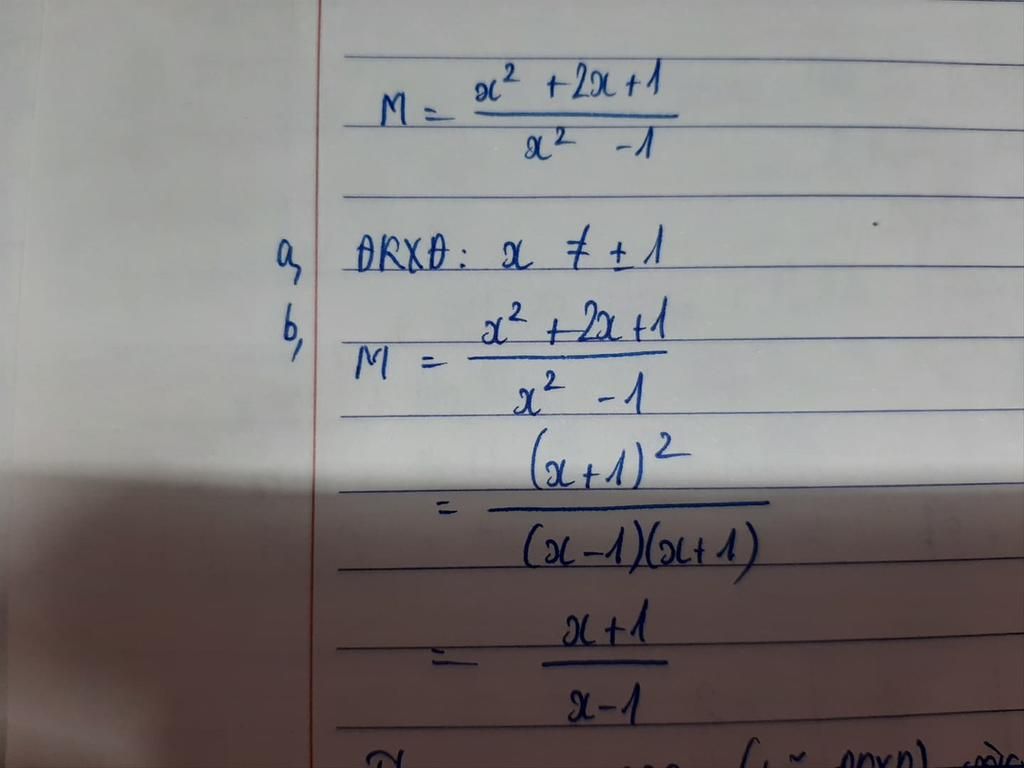 M = (x² + 2x + 1) / (x² - 1)
a, ĐKXĐ: x ≠ ± 1
b, M = (x² + 2x + 1) / (x² - 1)
= (x+1)² / (x-1)(x+1)
= (x+1) / (x-1)